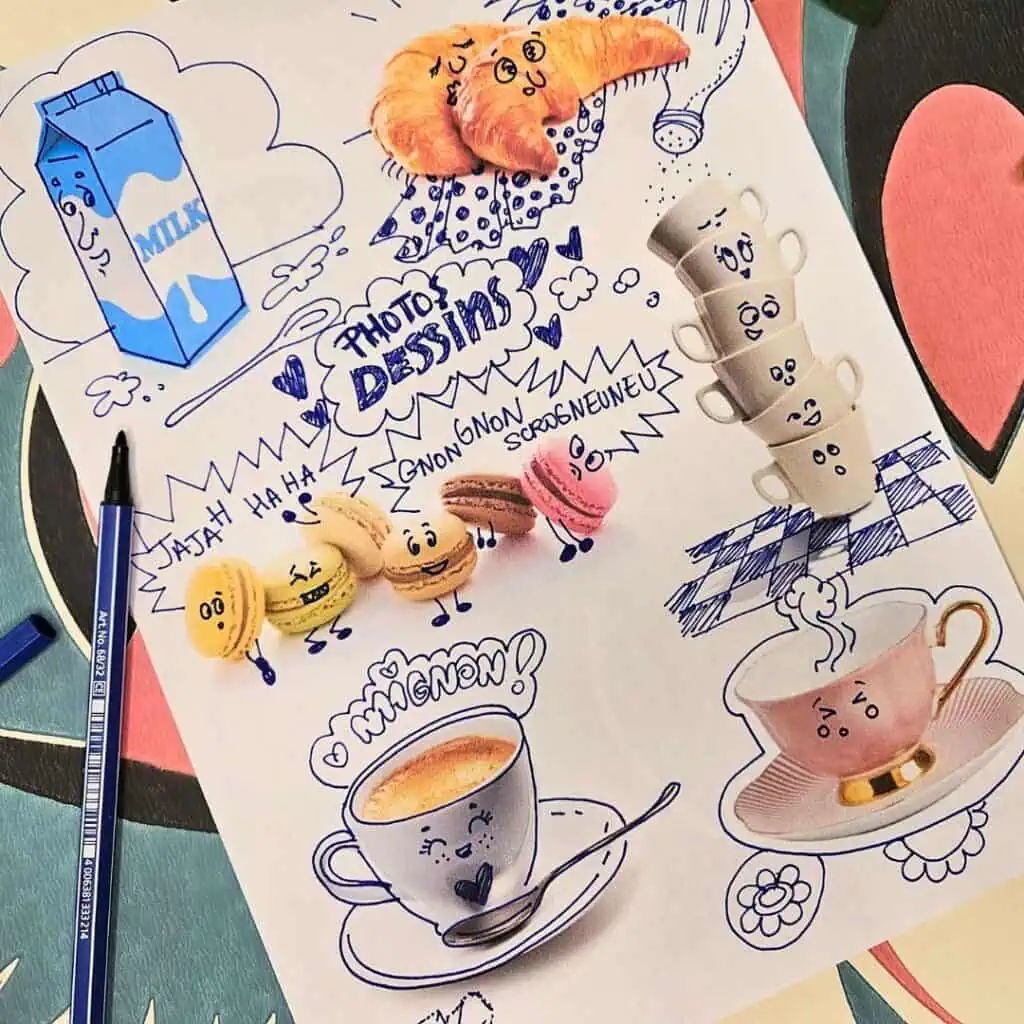 MILK
PHOTOS
DESSINS
JAJAH HA HA
GNON GNON
SCROGNEUNEU
MIGNON!
Art. No. 68/32 CE
4 006381 333214